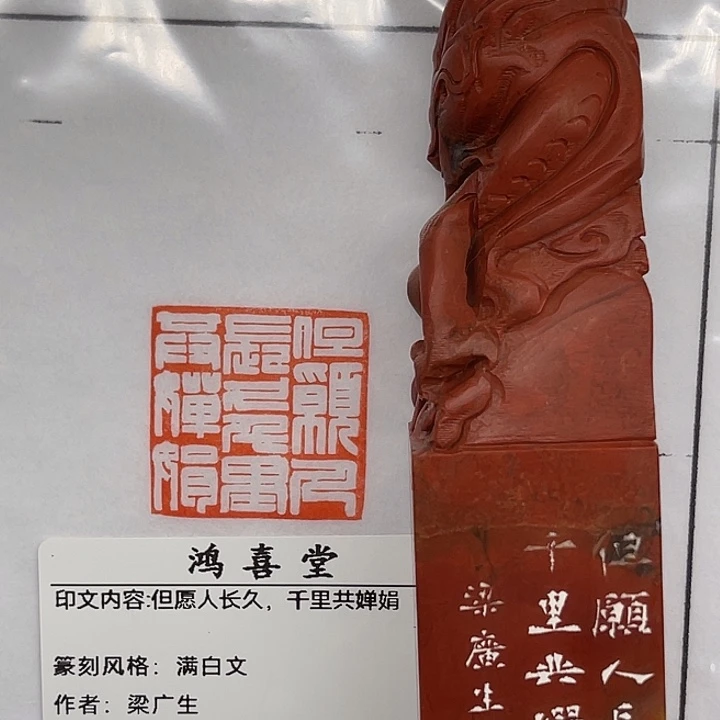 但願人
長久千里
共嬋娟
鸿喜堂
印文内容:但愿人长久，千里共婵娟
篆刻风格：满白文
作者：梁广生
但願人長
千里共嬋
梁廣生